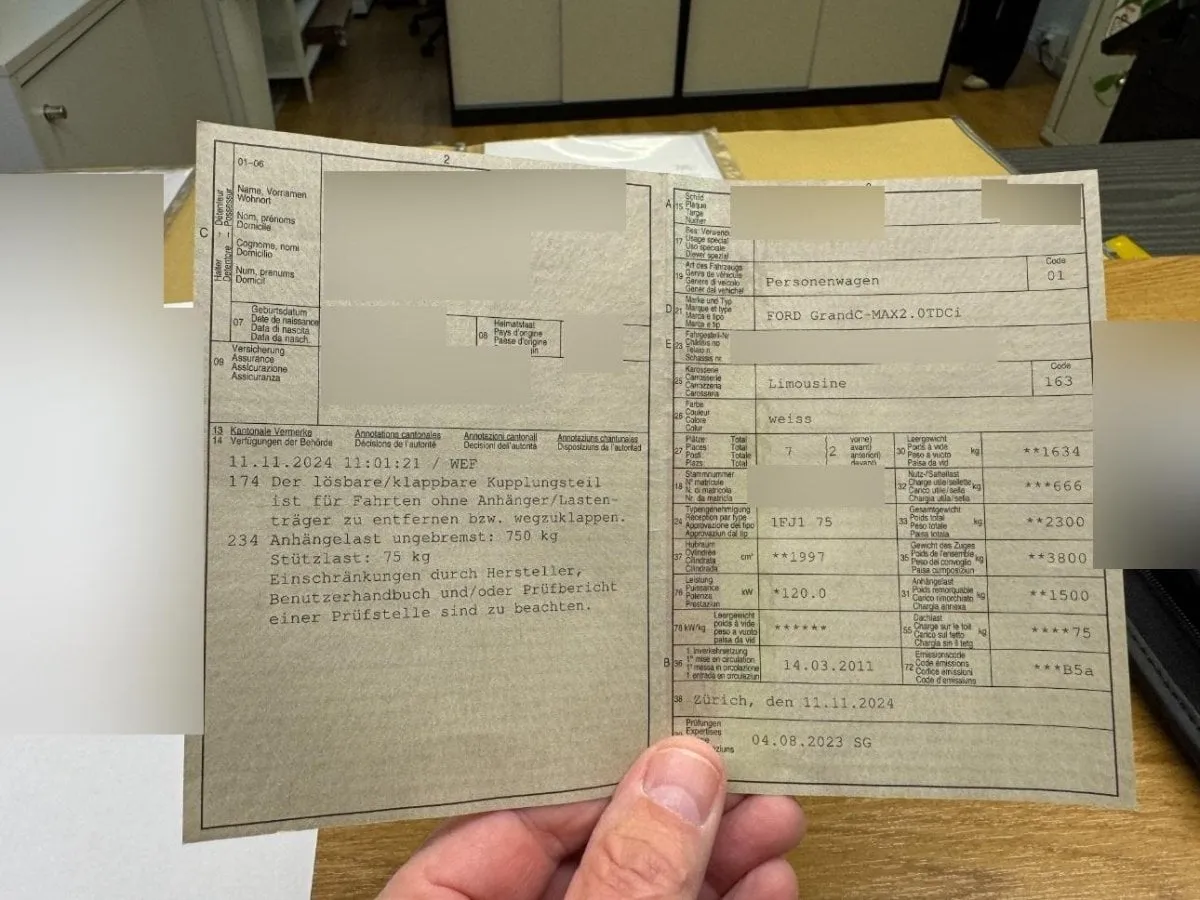 2
01-06
C
Halter Détenteur
Detentore Possessur
Name, Vornamen
Wohnort
Nom, prénoms
Domicile
Cognome, nomi
Domicilio
Num, prenums
Domicil
07
Geburtsdatum
Date de naissance
Data di nascita
Data da nasch.
08
Heimatstaat
Pays d'origine
Paese d'origine
09
Versicherung
Assurance
Assicurazione
Assicuranza
13 Kantonale Vermerke Annotations cantonales Annotazioni cantonali Annotaziuns chantunalas
14 Verfügungen der Behörde Décisions de l'autorité Decisioni dell'autorità Disposiziuns da l'autoritad
11.11.2024 11:01:21 / WEF
174 Der lösbare/klappbare Kupplungsteil
ist für Fahrten ohne Anhänger/Lasten-
träger zu entfernen bzw. wegzuklappen.
234 Anhängelast ungebremst: 750 kg
Stützlast: 75 kg
Einschränkungen durch Hersteller,
Benutzerhandbuch und/oder Prüfbericht
einer Prüfstelle sind zu beachten.
A 15
Schild
Plaque
Targa
Numer
17
Bes. Verwend.
Usage spécial
Uso speciale
Diever spezial
19
Art des Fahrzeugs
Genre de véhicule
Genere di veicolo
Gener dal vehichel
Personenwagen
Code
01
D 21
Marke und Typ
Marque et type
Marca e tipo
Marca e tip
FORD GrandC-MAX2.0TDCi
E 23
Fahrgestell-Nr.
Châssis no
Telaio n.
Schassis nr.
25
Karosserie
Carrosserie
Carrozzeria
Carossaria
Limousine
Code
163
26
Farbe
Couleur
Colore
Colur
weiss
27
Plätze: Total
Places: Total
Posti: Totale
Plazs: Totala
7
2
vorne)
avant)
anteriori)
davant)
30
Leergewicht
Poids à vide
Peso a vuoto
Paisa da vid
kg
**1634
18
Stammnummer
N° matricule
N. di matricola
Nr. da matricla
32
Nutz-/Sattellast
Charge utile/sellette
Carico utile/sella
Chargia utila/sella
kg
***666
24
Typengenehmigung
Réception par type
Approvazione del tipo
Approvaziun dal tip
1FJ1 75
33
Gesamtgewicht
Poids total
Peso totale
Paisa totala
kg
**2300
37
Hubraum
Cylindrée
Cilindrata
Cilindrada
cm³
**1997
35
Gewicht des Zuges
Poids de l'ensemble
Peso del convoglio
Paisa cumposiziun
kg
**3800
76
Leistung
Puissance
Potenza
Prestaziun
kW
*120.0
31
Anhängelast
Poids remorquable
Carico rimorchiato
Chargia annexa
kg
**1500
78 kW/kg
Leergewicht
poids à vide
peso a vuoto
paisa da vid
******
55
Dachlast
Charge sur le toit
Carico sul tetto
Chargia sin il tetg
kg
****75
B 36
1. Inverkehrsetzung
1re mise en circulation
1a messa in circolazione
1. entrada en circulaziun
14.03.2011
72
Emissionscode
Code émissions
Codice emissioni
Code d'emissiuns
***B5a
38 Zürich, den 11.11.2024
Prüfungen
Expertises
04.08.2023 SG